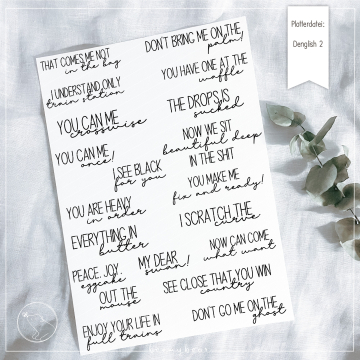 Plotterdatei:
Denglish 2
THAT COMES ME NOT
in the bag
DON'T BRING ME ON THE
palm!
I UNDERSTAND ONLY
train station
YOU HAVE ONE AT THE
waffle
YOU CAN ME
crosswise
THE DROPS IS
sucked
YOU CAN ME
once!
NOW WE SIT
beautiful deep
IN THE SHIT
I SEE BLACK
for you
YOU MAKE ME
fix and ready!
YOU ARE HEAVY
in order
I SCRATCH THE
curve
EVERYTHING IN
butter
NOW CAN COME
what want
PEACE, JOY,
eggcake
MY DEAR
swan!
SEE CLOSE THAT YOU WIN
country
OUT THE
mouse
DON'T GO ME ON THE
ghost
ENJOY YOUR LIFE IN
full trains